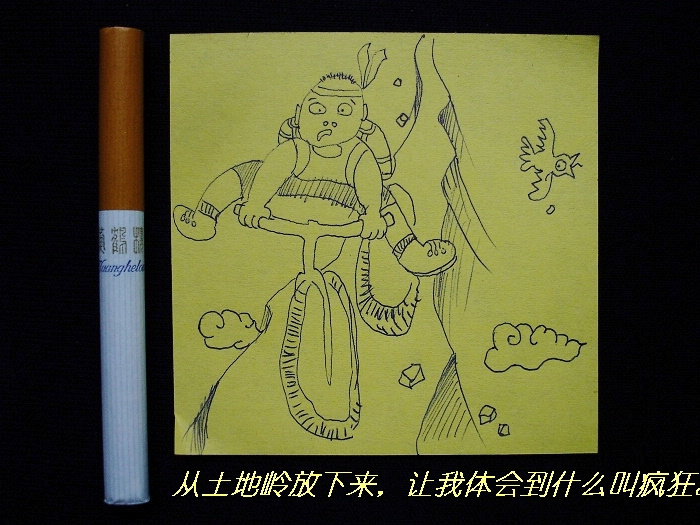 黄鹤楼
Huanghelou
从土地岭放下来，让我体会到什么叫疯狂